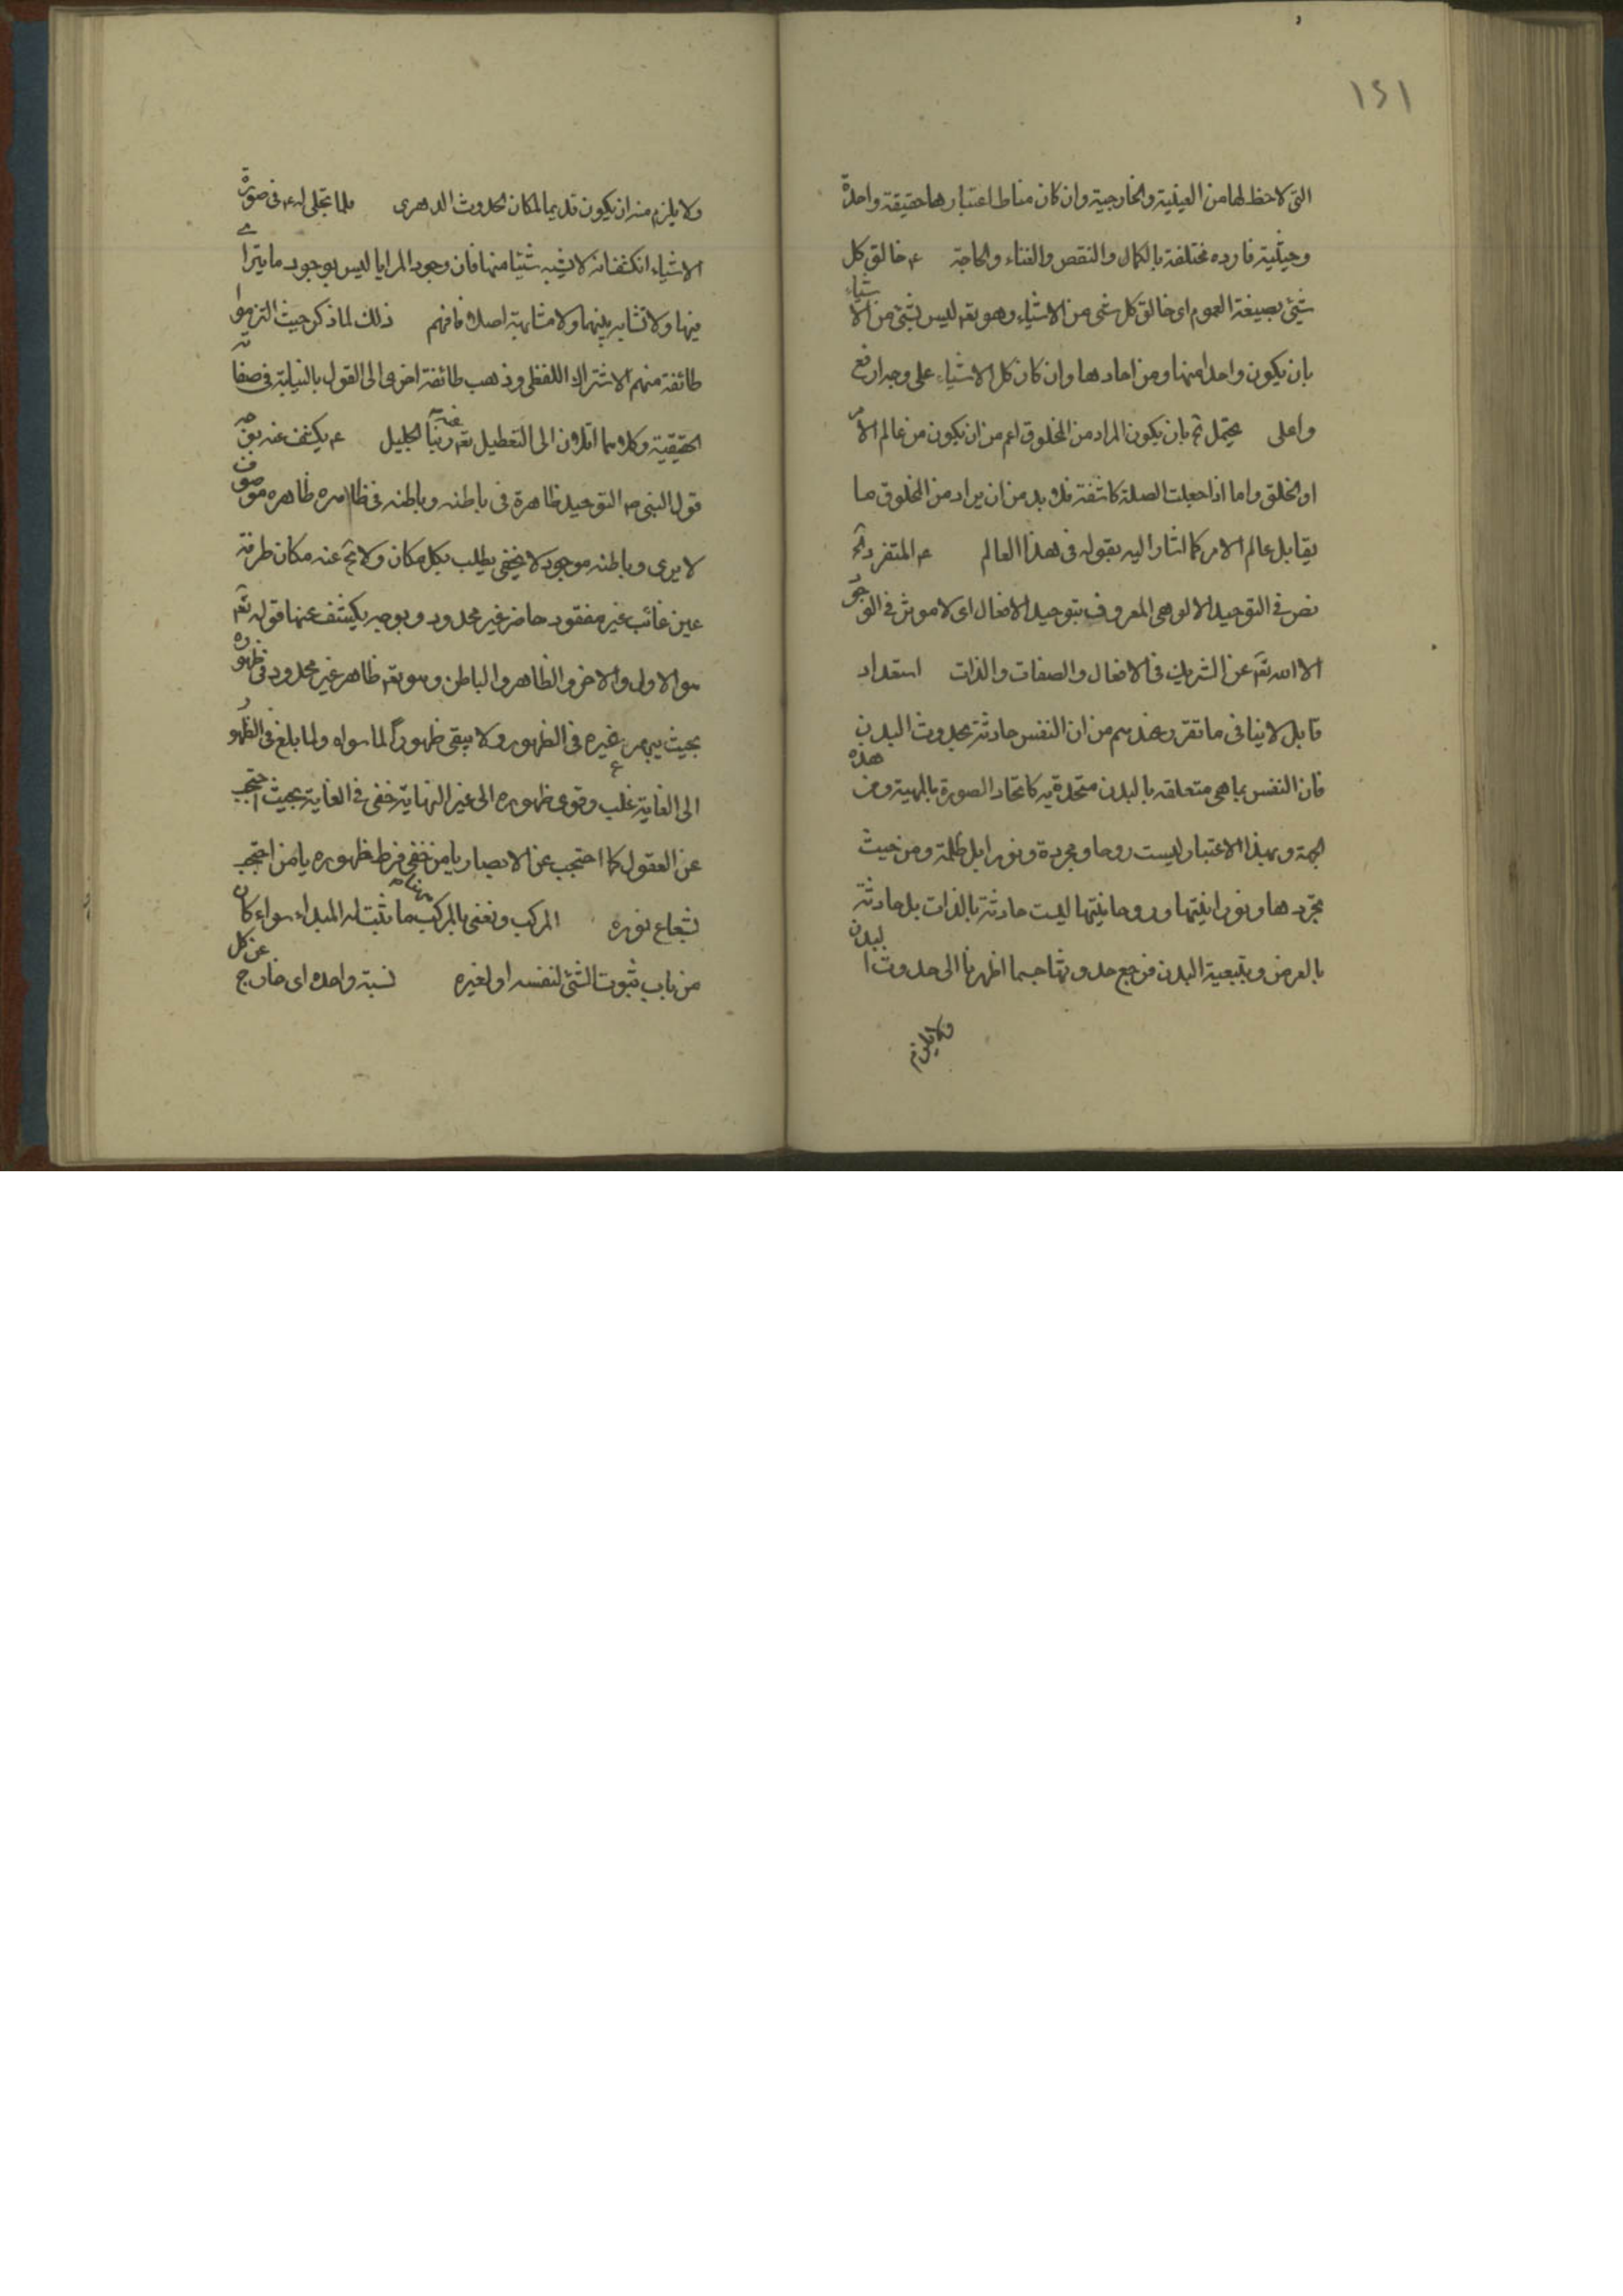 ١٢١
التی لاحظ لها من العینیة والخارجیة وان کان مناط اعتبارها حقیقة واحدة
وحیثیة فارده مختلفة بالکمال والنقص والغناء والحاجة ع خالق کل
شیئ بصیغة العموم ای خالق کل شی من الاشیاء وهو تعہ لیس بشئ من الاشیاء
بان یکون واحدا منها ومن احادها وان کان کل الاشیاء علی وجه ارفع
واعلی یحتمل ثم بان یکون المراد من المخلوق اعم من ان یکون من عالم الامر
او الخلق واما اذا جعلت الصلة کاشفة فلا بد من ان یراد من المخلوق ما
یقابل عالم الامر کما اشار الیه بقوله فی هذا العالم ع المتفرد
نص فی التوحید الالوهی المعروف بتوحید الافعال ای لا موثر فی الوجو
الا الله تعہ عن الشریک فی الافعال والصفات والذات استعداد
قابل لا ینافی ما تقرر عندهم من ان النفس حادثة بحدوث البدن
فان النفس بما هی متعلقه بالبدن متحدة به کاتحاد الصورة بالمهیة ومن هذه
الجهة وبهذا الاعتبار لیست روحا ومجردة ونورا بل ظلمة ومن حیث
تجردها ونورانیتها وروحانیتها لیست حادثة بالذات بل حادثة
بالعرض وبتبعیة البدن فرجع حدوثها حسبما اظهرنا الی حدوث البدن
ولا یلزم
ولا یلزم منه ان یکون قدیما لمکان الحدوث الدهری فلما تجلی له ع فی صورة
الاشیاء انکشفانه لا یشبه شیئا منها فان وجود المرایا لیس بوجود ما یترای
فیها ولا تشابه بینهما ولا مشابهة اصلا فافهم ذلک لما ذکر حیث التزموا
طائفة منهم الاشتراک اللفظی وذهب طائفة اخری الی القول بالنیابة فی صفاته
الحقیقیة وکلاهما اتلان الی التعطیل تعہ ربنا الجلیل ع یکشف عنه
قول النبی ص التوحید ظاهرة فی باطنه وباطنه فی ظاهره ظاهره موصوف
لا یری وباطنه موجود لا یخفی یطلب بکل مکان ولا یخ عنه مکان طرفة
عین غائب غیر مفقود حاضر غیر محدود وبوجه یکشف عنها قوله تعہ
هو الاول والاخر والظاهر والباطن وهو تعہ ظاهر غیر محدود فی ظهوره
بحیث یبهر غیره فی الظهور ولا یبقی ظهورا لما سواه ولما بلغ فی الظهور
الی الغایة غلب وقوی ظهوره الی غیر النهایة خفی فی الغایة بحیث احتجب
عن العقول کما احتجب عن الابصار یا من خفی فرط ظهوره یا من احتجب
بشعاع نوره المرکب ونعنی بالمرکب هاهنا ما ثبت له المبداء سواء کان
من باب ثبوت الشئ لنفسه او لغیره نسبة واحده ای خارج عن کل